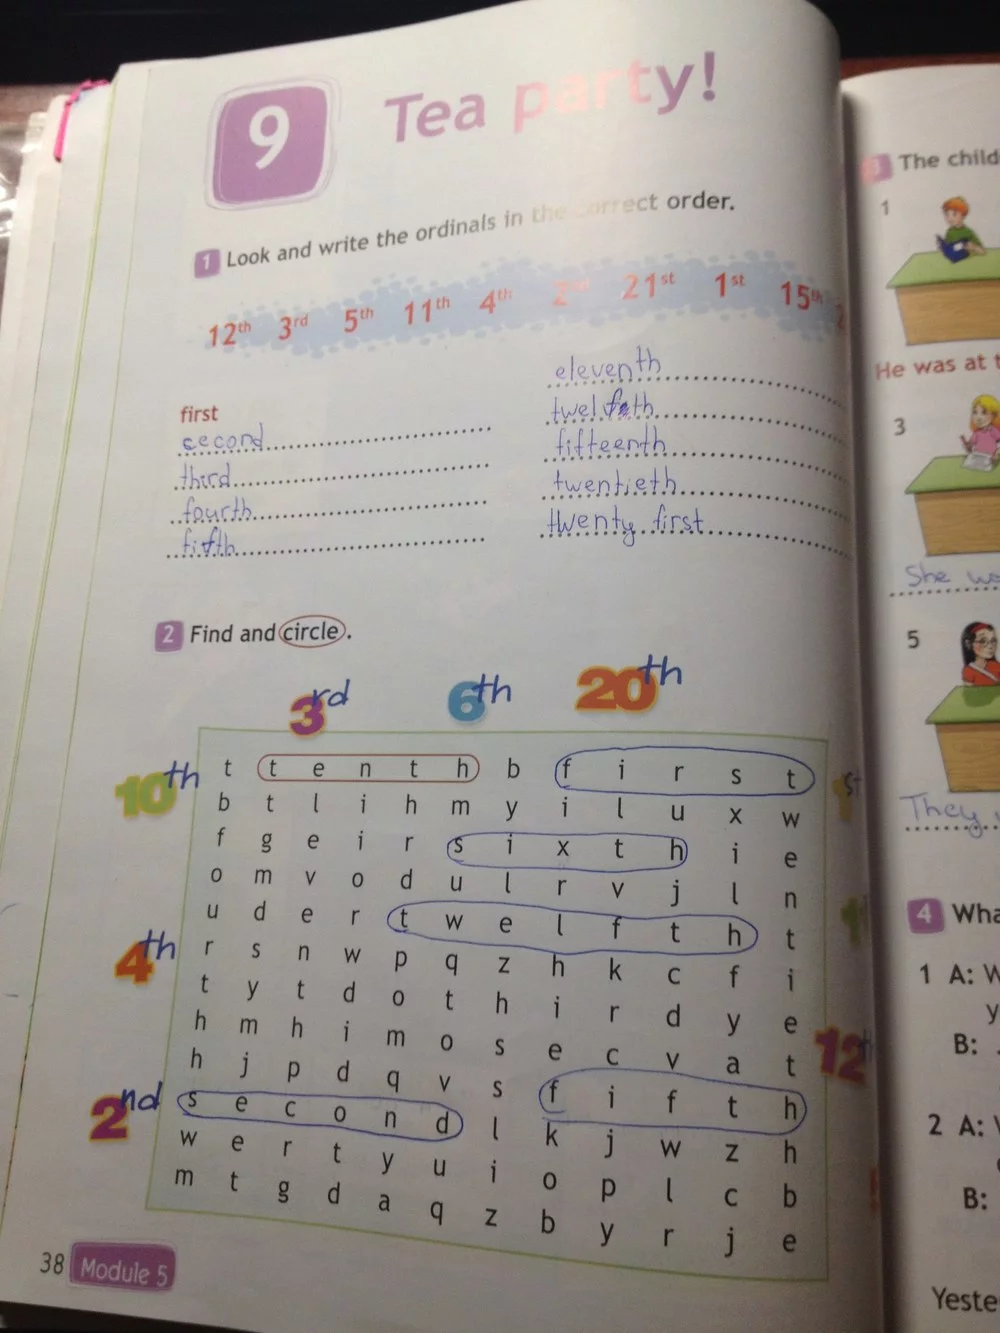 9 Tea party!
1 Look and write the ordinals in the correct order.
12th 3rd 5th 11th 4th 2nd 21st 1st 15th 2
first
cecond
third
fourth
fifth
eleventh
twelfth
fifteenth
twentieth
twenty first
2 Find and circle.
3rd 6th 20th
10th
4th
2nd
1st
11
12th
t t e n t h b f i r s t
b t l i h m y i l u x w
f g e i r s i x t h i e
o m v o d u l r v j l n
u d e r t w e l f t h t
r s n w p q z h k c f i
t y t d o t h i r d y e
h m h i m o s e c v a t
h j p d q v s f i f t h
s e c o n d l k j w z h
w e r t y u i o p l c b
m t g d a q z b y r j e
38 Module 5
3 The child
1
He was at t
3
She wa
5
They
4 Wha
1 A: W
y
B:
2 A:
B:
Yeste